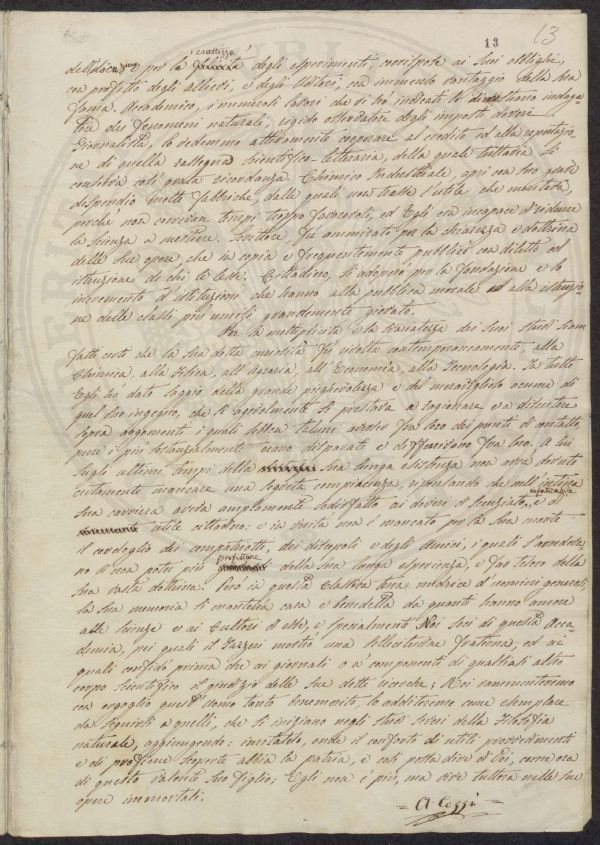 13
13
esattezza
dell'elocuzione e per la degli esperimenti, corrispose ai suoi obblighi,
con profitto degli allievi, e degli Uditori, con immenso vantaggio della sua
fama. Accademico, i numerosi lavori che vi ho indicati lo dimostrano indaga-
tore dei fenomeni naturali, rigido osservatore degli imposti doveri.
Giornalista, lo vedemmo attivamente cooperare al credito ed alla reputazio-
ne di quella rassegna scientifico-letteraria, della quale tuttavia si
contava così grata ricordanza. Chimico Industriale, aprì con suo grave
dispendio molte fabbriche, dalle quali non trasse l'utile che meritava,
perché non correvan tempi troppo favorevoli, ed Egli era incapace di ridurre
la scienza a mestiere. Scrittore fu ammirato per la chiarezza e dottrina
delle sue opere, che in copia e frequentemente pubblicò con diletto ed
istruzione di chi le lesse. Cittadino, si adoprò per la fondazione e lo
incremento d'istituzioni che hanno alla pubblica morale ed alla istruzio-
ne delle classi più umili grandemente giovato.
Per la moltiplicità e la svariatezza dei suoi studi siam
fatti certi che la sua dotta curiosità fu rivolta contemporaneamente, alla
Chimica, alla Fisica, all'Agraria, all'Economia, alla Tecnologia. In tutte
Egli ha dato saggio della grande pieghevolezza e del meraviglioso acume di
quel suo ingegno, che sì agevolmente si prestava a ragionare e a discutere
sopra argomenti i quali sebbene taluni avessero fra loro dei punti di contatto,
pure i più sostanzialmente erano disparati e differivano fra loro. A lui
sugli ultimi tempi della sua lunga esistenza non avrà dovuto
certamente mancare una segreta compiacenza, ripensando che nell'intiera
sua carriera aveva ampiamente sodisfatto ai doveri di Scienziato, e di
utile cittadino: e in verità non è mancato per la sua morte
il cordoglio dei compatriotti, dei discepoli e degli Amici, i quali
no di non poter più della sua lunga esperienza, e far tesoro della
sua vasta dottrina. Però in questa Classica terra madre d'uomini generosi,
la sua memoria si manterrà cara e benedetta da quanti hanno amore
alle Scienze e ai Cultori di esse, e specialmente Noi soci di questa Acca-
demia, pei quali il Gazzeri mostrò una sollecitudine fraterna, ed ai
quali confidò prima che ai giornali o a componenti di qualsiasi altro
corpo scientifico il giudizio delle sue dotte ricerche; Noi rammenteremo
con orgoglio quest'uomo tanto benemerito, lo additeremo come esemplare
da seguirsi a quelli, che si iniziano negli studi severi della Filosofia
naturale, aggiungendo: imitatelo, onde il conforto di utili provvedimenti
e di proficue scoperte abbia la patria, e così possa dire di Voi, come ora
di questo valente suo figlio; Egli non è più, ma vive tuttora nelle sue
opere immortali.
A. Cozzi